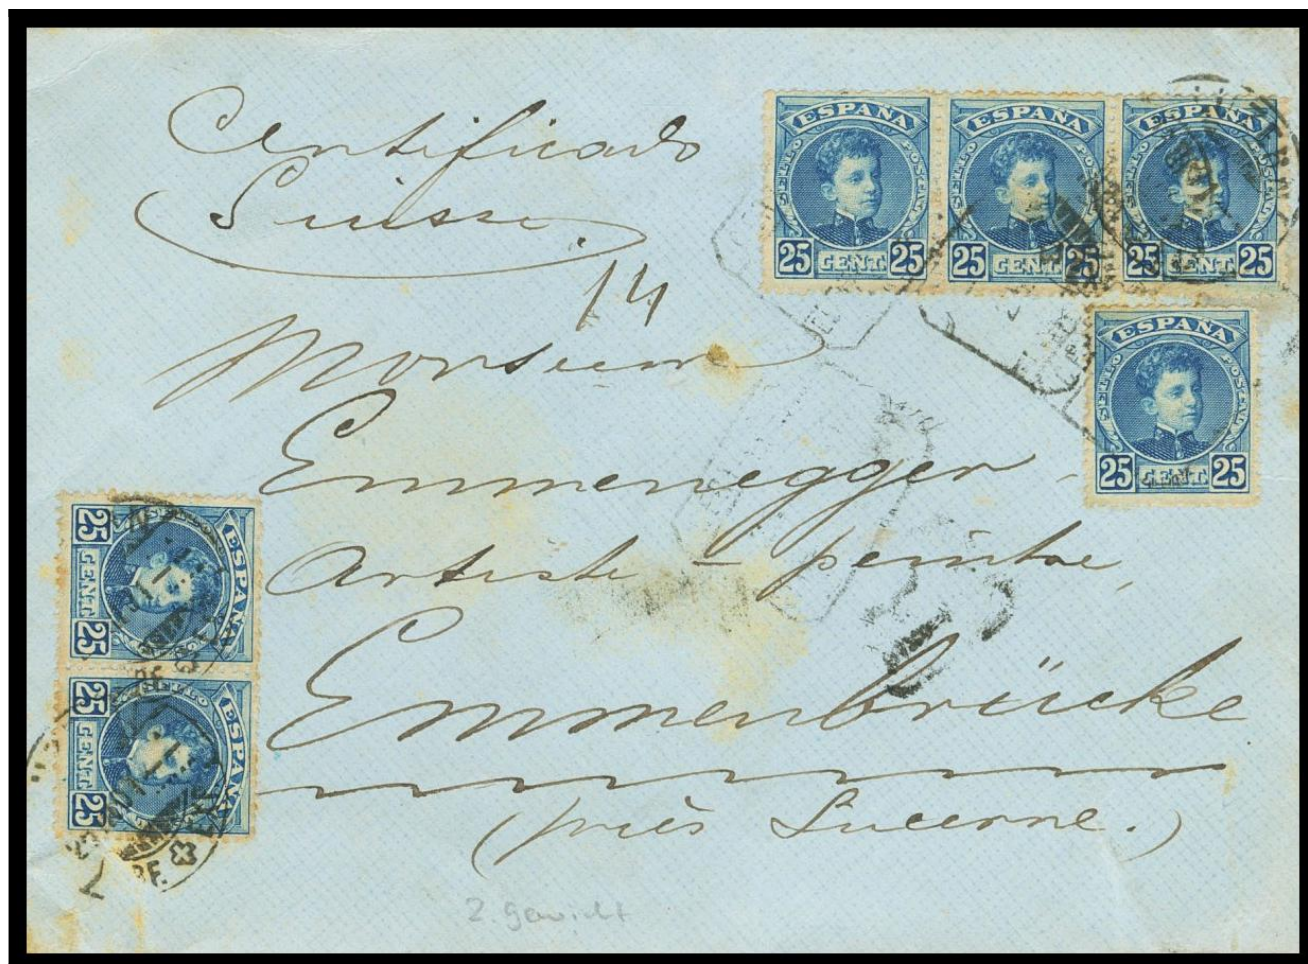 Certificado
Suisse.
14
Monsieur
Emmenegger
Artiste - peintre,
Emmenbrücke
(près Lucerne.)
2. Gewicht
ESPAÑA
SELLO POSTAL
25 CENT. 25
ESPAÑA
SELLO POSTAL
25 CENT. 25
ESPAÑA
SELLO POSTAL
25 CENT. 25
ESPAÑA
SELLO POSTAL
25 CENT. 25
ESPAÑA
25 CENT. 25
ESPAÑA
25 CENT. 25